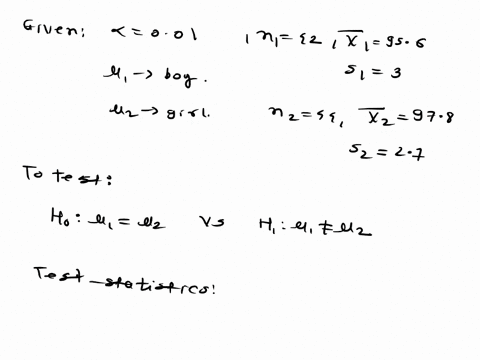 Given: α = 0.01 , n₁ = 42 , x̄₁ = 95.6
μ₁ → boy. s₁ = 3
μ₂ → girl. n₂ = 44, x̄₂ = 97.8
s₂ = 2.7
To test:
H₀: μ₁ = μ₂ Vs H₁: μ₁ ≠ μ₂
Test statistics: